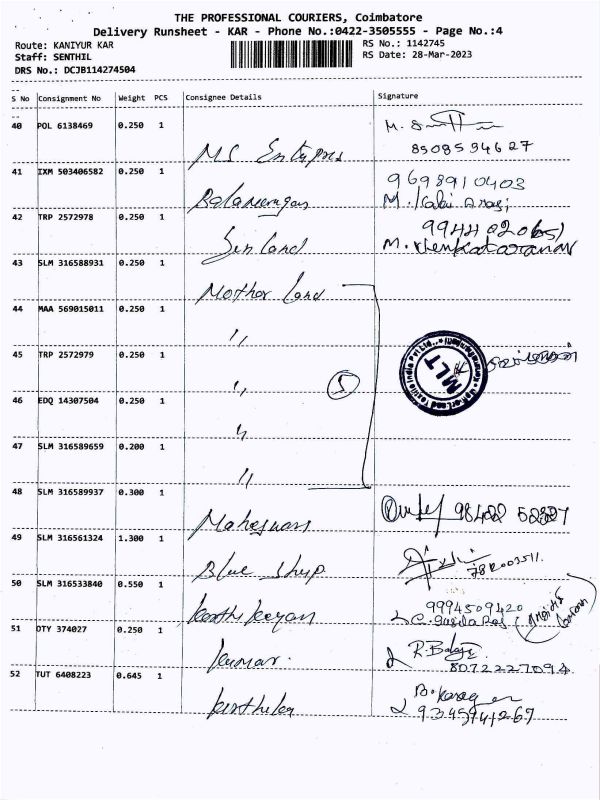 THE PROFESSIONAL COURIERS, Coimbatore
Delivery Runsheet - KAR - Phone No.:0422-3505555 - Page No.:4
Route: KANIYUR KAR
Staff: SENTHIL
DRS No.: DCJB114274504
RS No.: 1142745
RS Date: 28-Mar-2023
S No Consignment No Weight PCS Consignee Details Signature
40 POL 6138469 0.250 1
MS
8508594627
41 IXM 503406582 0.250 1
9698910403
Balamurugan
42 TRP 2572978 0.250 1
Sunland M. Venkataraman
43 SLM 316588931 0.250 1
Mother Land
44 MAA 569015011 0.250 1
〃
45 TRP 2572979 0.250 1
〃 5
MLT
46 EDQ 14307504 0.250 1
〃
47 SLM 316589659 0.200 1
〃
48 SLM 316589937 0.300 1
Maheswari
49 SLM 316561324 1.300 1
Blue Ship
50 SLM 316533840 0.550 1
9994509420
Karthikeyan
51 OTY 374027 0.250 1
R. Balaji
Kumar. 8072227094
52 TUT 6408223 0.645 1